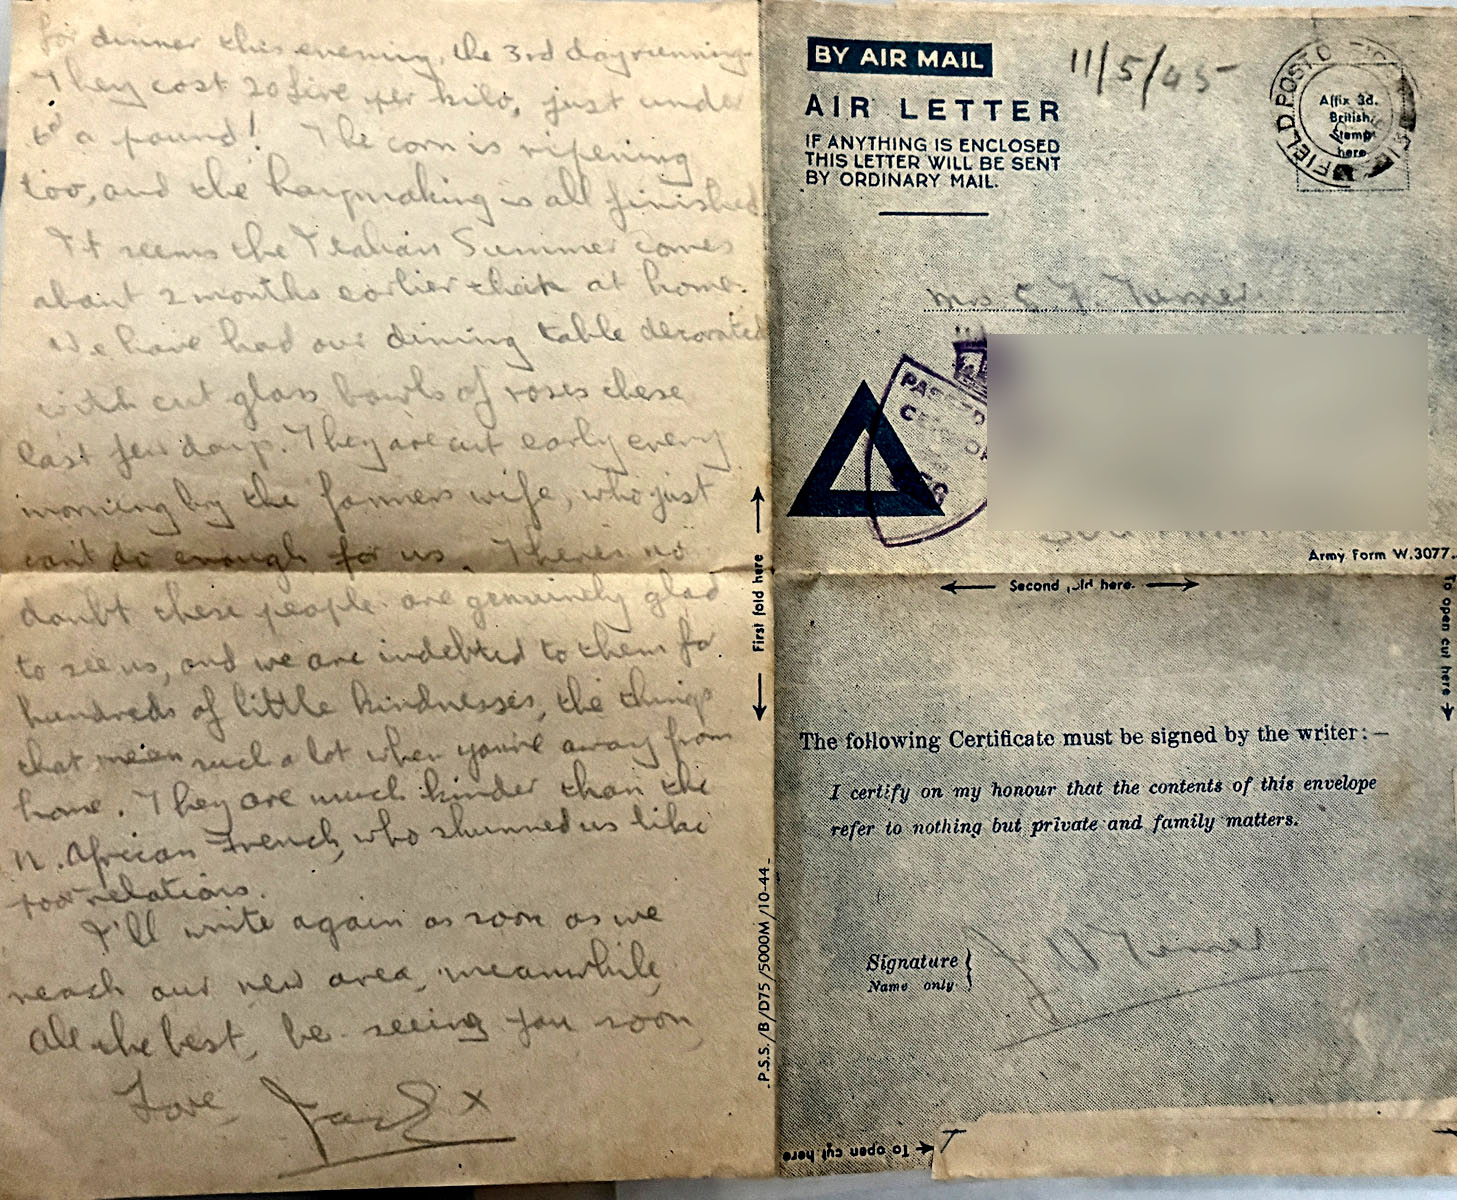 for dinner this evening, the 3rd day running.
They cost 20 lire per kilo, just under
6d a pound! The corn is ripening
too, and the haymaking is all finished.
It seems the Italian Summer comes
about 2 months earlier than at home.
We have had our dining table decorated
with cut glass bowls of roses these
last few days. They are cut early every
morning by the farmers wife, who just
can't do enough for us. There's no
doubt these people are genuinely glad
to see us, and we are indebted to them for
hundreds of little kindnesses, the things
that mean such a lot when you're away from
home. They are much kinder than the
N. African French, who shunned us like
poor relations.
I'll write again as soon as we
reach our new area, meanwhile,
All the best, be seeing you soon,
Love, Jack x
First fold here
P.S.S./B/D75/5000M/10-44
BY AIR MAIL
11/5/45
AIR LETTER
IF ANYTHING IS ENCLOSED
THIS LETTER WILL BE SENT
BY ORDINARY MAIL.
FIELD POST OFFICE
Affix 3d.
British
Stamp
here
Mrs Turner
PASSED
CENSOR
Army Form W.3077.
Second fold here.
To open cut here
The following Certificate must be signed by the writer:—
I certify on my honour that the contents of this envelope
refer to nothing but private and family matters.
Signature
Name only
Turner
To open cut here